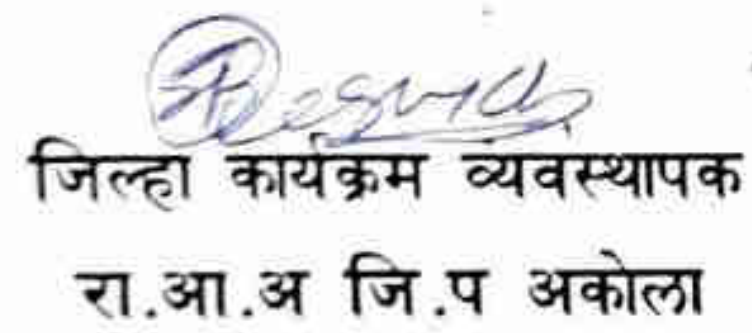 जिल्हा कार्यक्रम व्यवस्थापक
रा.आ.अ जि.प अकोला